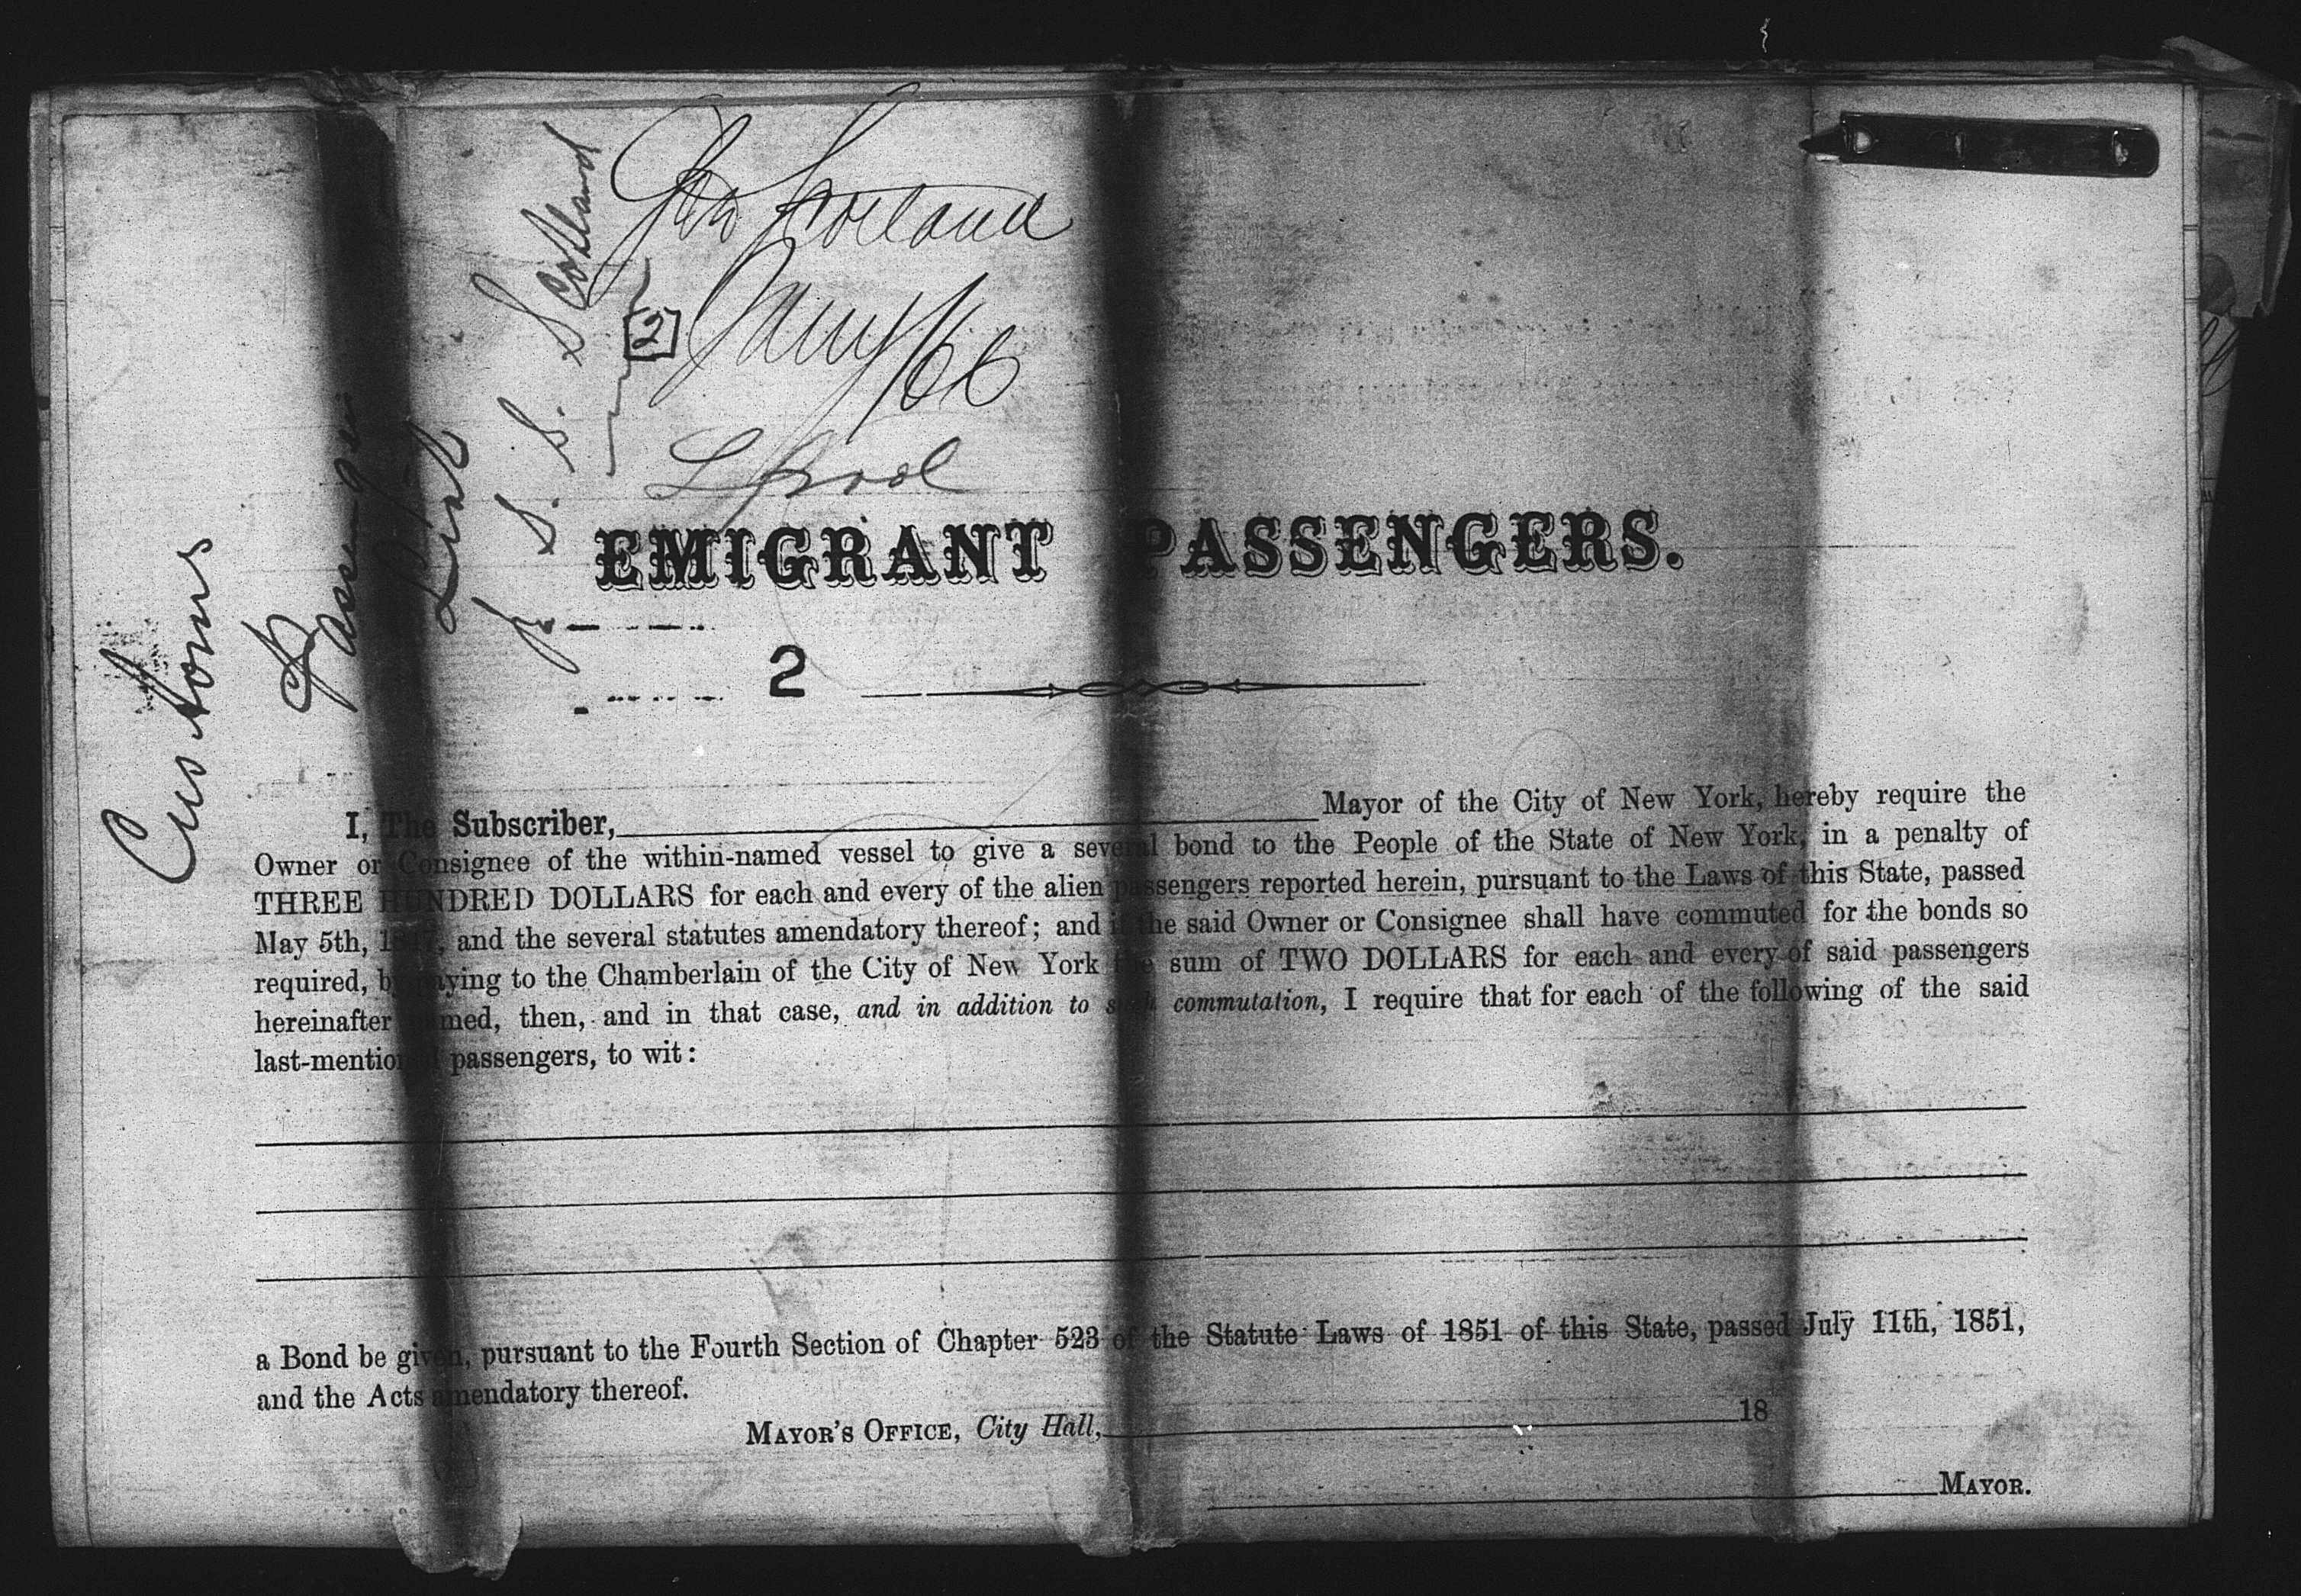 Customs
Passenger
List
S. S. Scotland
Scotland
[2]
Jany/66
Lpool
EMIGRANT PASSENGERS.
2
I, The Subscriber, Mayor of the City of New York, hereby require the
Owner or Consignee of the within-named vessel to give a several bond to the People of the State of New York, in a penalty of
THREE HUNDRED DOLLARS for each and every of the alien passengers reported herein, pursuant to the Laws of this State, passed
May 5th, 1847, and the several statutes amendatory thereof; and if the said Owner or Consignee shall have commuted for the bonds so
required, by paying to the Chamberlain of the City of New York the sum of TWO DOLLARS for each and every of said passengers
hereinafter named, then, and in that case, and in addition to such commutation, I require that for each of the following of the said
last-mentioned passengers, to wit:
a Bond be given, pursuant to the Fourth Section of Chapter 523 of the Statute Laws of 1851 of this State, passed July 11th, 1851,
and the Acts amendatory thereof.
MAYOR'S OFFICE, City Hall, 18
MAYOR.